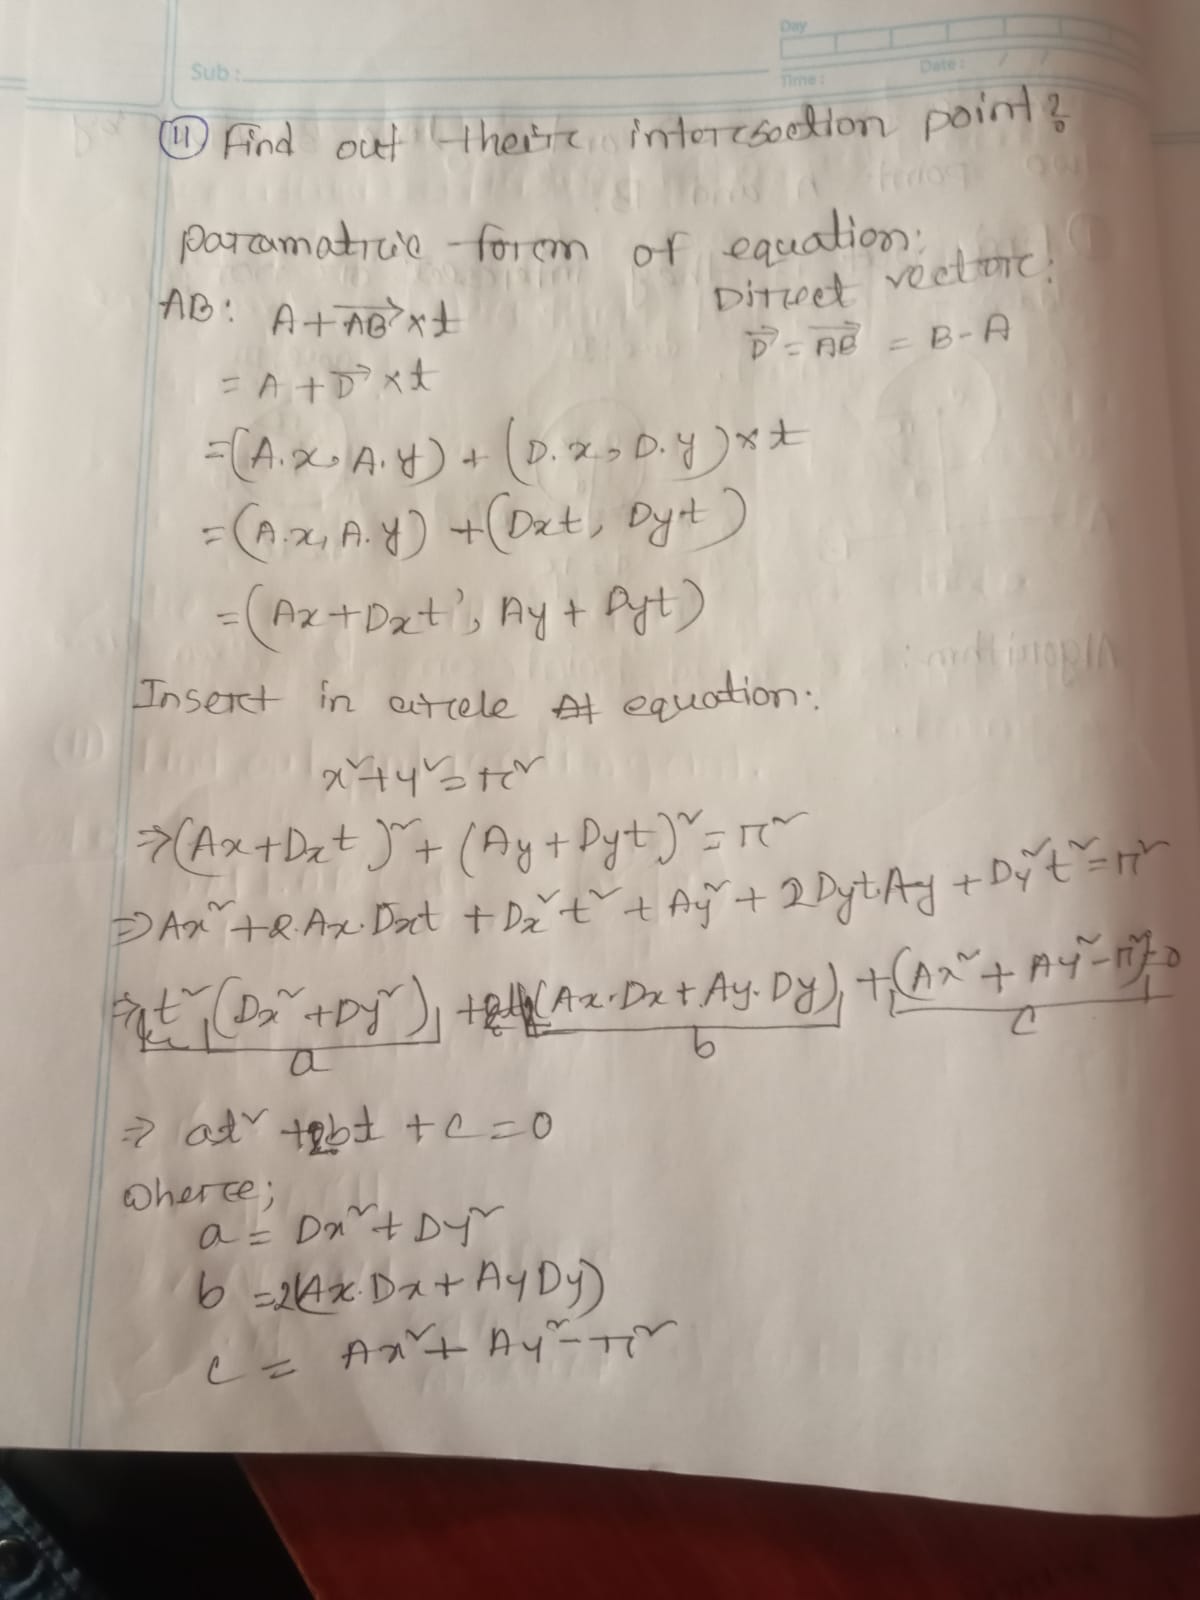 Day
Sub:
Time:
Date:
(11) Find out their intersection point?
paramatric form of equation:
Direct vector:
AB: A+AB⃗×t
D⃗ = AB⃗ = B-A
= A+D⃗×t
=(A.x, A.y) + (D.x, D.y)×t
=(A.x, A.y) +(Dxt, Dyt)
=(Ax+Dxt, Ay + Dyt)
Insert in circle equation:
x²+y²=r²
⇒(Ax+Dxt)²+ (Ay+Dyt)²=r²
⇒Ax²+2.Ax.Dxt +Dx²t²+Ay²+2Dyt.Ay+Dy²t²=r²
⇒t²(Dx²+Dy²)+2t(Ax.Dx+Ay.Dy)+(Ax²+Ay²-r²)=0
a b c
⇒ at²+2bt+c=0
where;
a = Dx²+Dy²
b =2(Ax.Dx+AyDy)
c = Ax²+Ay²-r²